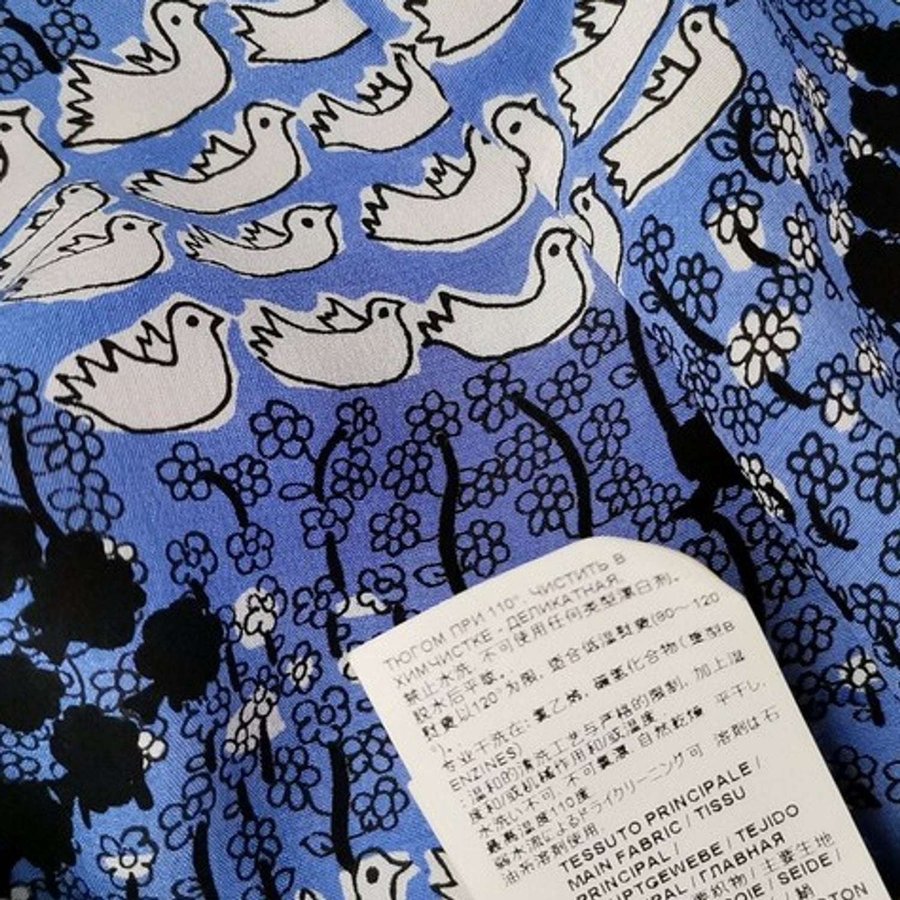 ТЮГОМ ПРИ 110°. ЧИСТИТЬ В
ХИМЧИСТКЕ - ДЕЛИКАТНАЯ.
禁止水洗. 不可使用任何类型漂白剂。
脱水后平晾. 适合低温熨烫(80～120
熨烫以120°为限.
专业干洗在:氯乙烯. 碳氢化合物(
ENZINES)
:温和的清洗工艺与严格的限制. 加上湿
度和/或机械作用和/或温度. 平干し.
水洗い不可. 不可氯漂. 自然乾燥
最高温度110度
弱水流によるドライクリーニング可 溶剤は石
油系溶剤使用.
TESSUTO PRINCIPALE /
MAIN FABRIC / TISSU
PRINCIPAL /
PTGEWEBE / TEJIDO
PAL / ГЛАВНАЯ
织物 / 主要生地
OIE / SEIDE /
/ 絹
TON